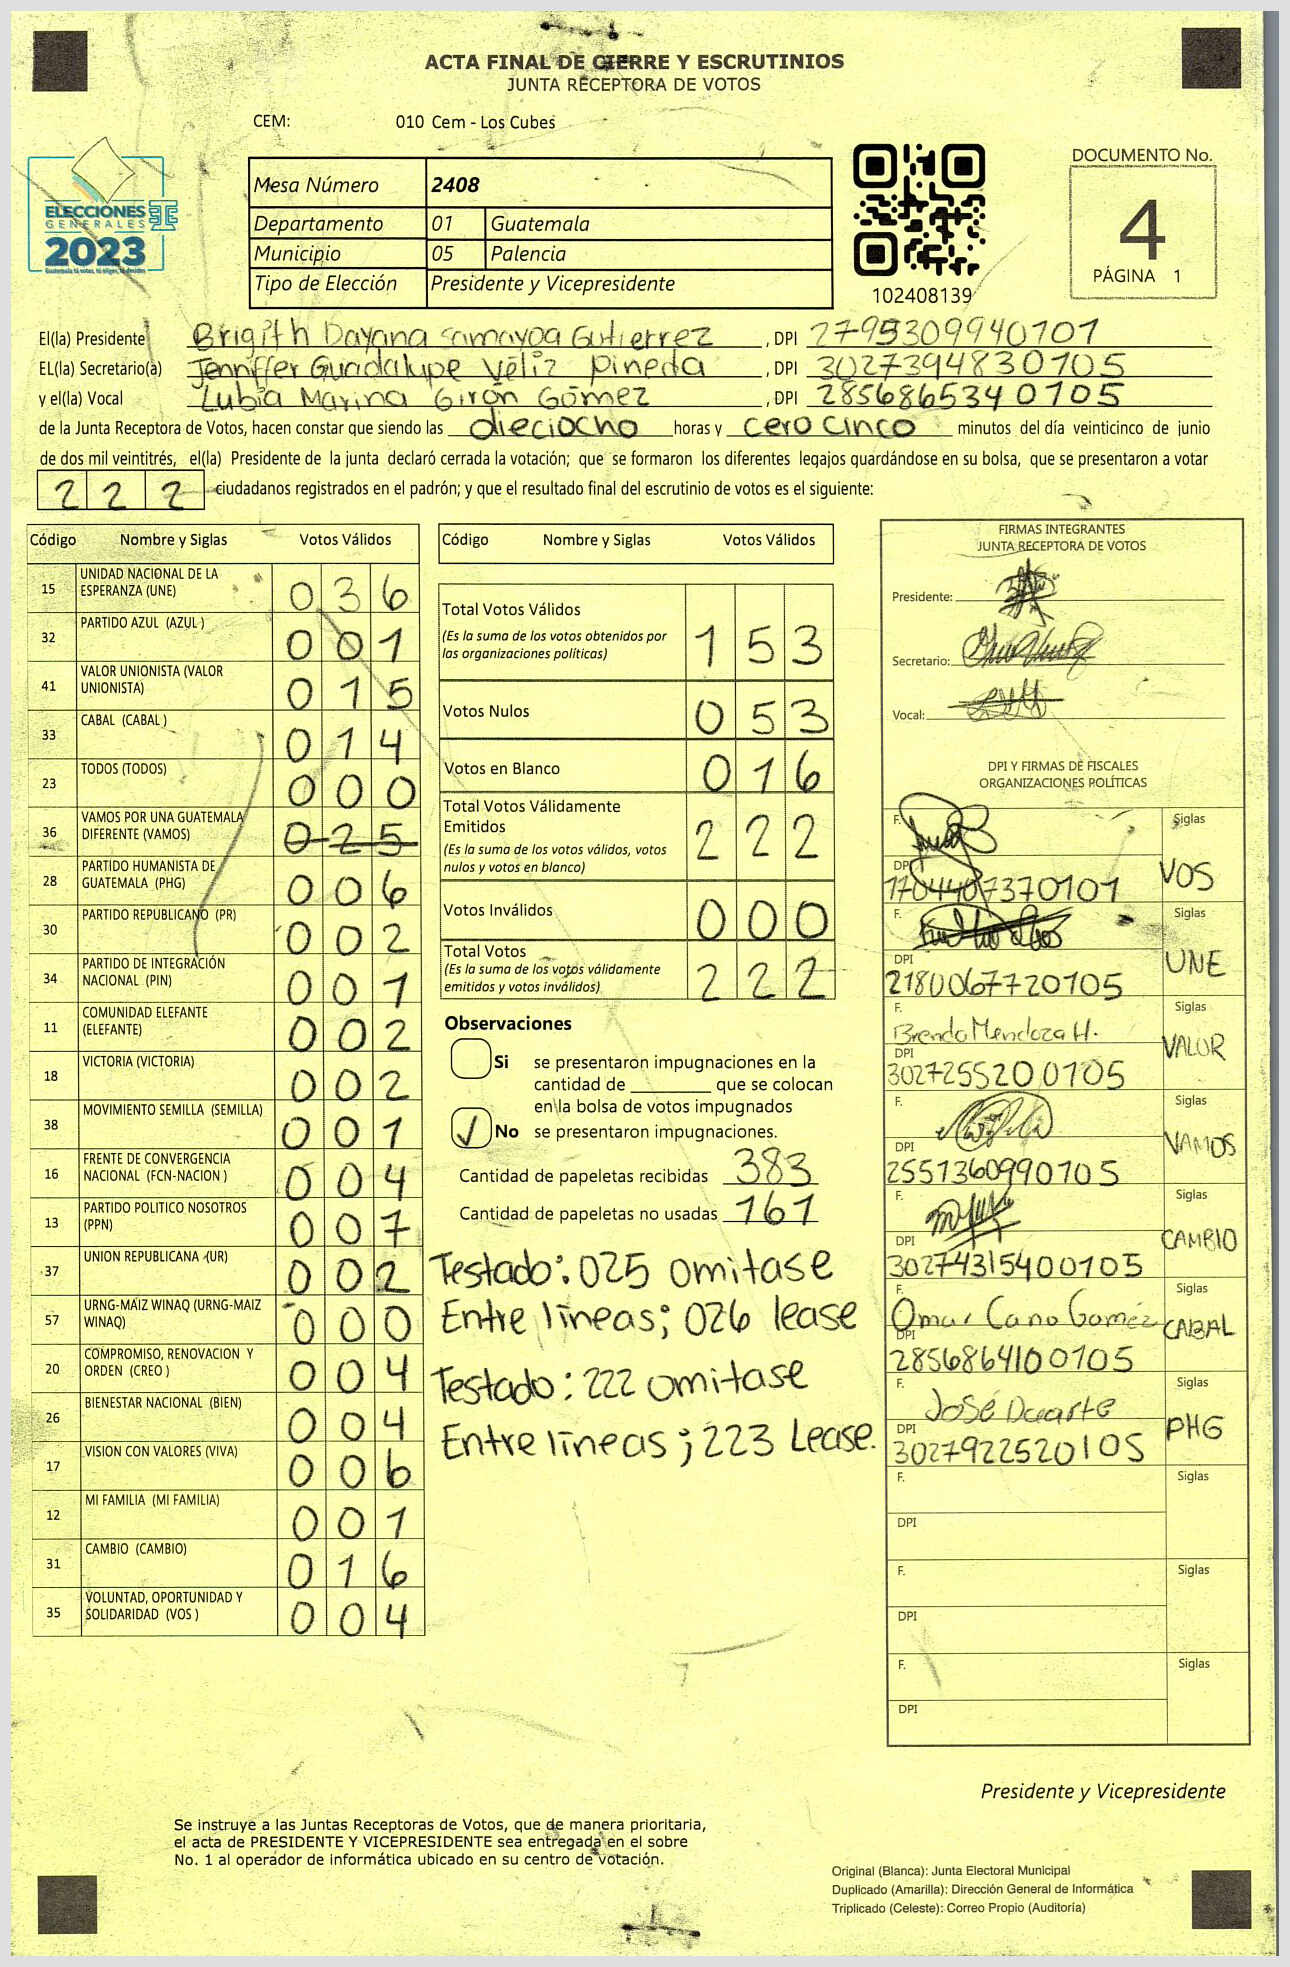 ACTA FINAL DE CIERRE Y ESCRUTINIOS
JUNTA RECEPTORA DE VOTOS
CEM: 010 Cem - Los Cubes
ELECCIONES
GENERALES
2023
Guatemala tú votas, tú eliges, tú decides
Mesa Número 2408
Departamento 01 Guatemala
Municipio 05 Palencia
Tipo de Elección Presidente y Vicepresidente
102408139
DOCUMENTO No.
4
PÁGINA 1
El(la) Presidente Brigith Dayana Samayoa Gutierrez, DPI 2795309940101
EL(la) Secretario(a) Jenniffer Guadalupe Véliz Pineda, DPI 3027394830105
y el(la) Vocal Lubia Marina Girón Gómez, DPI 2856865340105
de la Junta Receptora de Votos, hacen constar que siendo las dieciocho horas y cero cinco minutos del día veinticinco de junio
de dos mil veintitrés, el(la) Presidente de la junta declaró cerrada la votación; que se formaron los diferentes legajos guardándose en su bolsa, que se presentaron a votar
222 ciudadanos registrados en el padrón; y que el resultado final del escrutinio de votos es el siguiente:
Código Nombre y Siglas Votos Válidos
15 UNIDAD NACIONAL DE LA ESPERANZA (UNE) 036
32 PARTIDO AZUL (AZUL ) 001
41 VALOR UNIONISTA (VALOR UNIONISTA) 015
33 CABAL (CABAL ) 014
23 TODOS (TODOS) 000
36 VAMOS POR UNA GUATEMALA DIFERENTE (VAMOS) 025
28 PARTIDO HUMANISTA DE GUATEMALA (PHG) 006
30 PARTIDO REPUBLICANO (PR) 002
34 PARTIDO DE INTEGRACIÓN NACIONAL (PIN) 001
11 COMUNIDAD ELEFANTE (ELEFANTE) 002
18 VICTORIA (VICTORIA) 002
38 MOVIMIENTO SEMILLA (SEMILLA) 001
16 FRENTE DE CONVERGENCIA NACIONAL (FCN-NACION ) 004
13 PARTIDO POLITICO NOSOTROS (PPN) 007
37 UNION REPUBLICANA (UR) 002
57 URNG-MAIZ WINAQ (URNG-MAIZ WINAQ) 000
20 COMPROMISO, RENOVACION Y ORDEN (CREO ) 004
26 BIENESTAR NACIONAL (BIEN) 004
17 VISION CON VALORES (VIVA) 006
12 MI FAMILIA (MI FAMILIA) 001
31 CAMBIO (CAMBIO) 016
35 VOLUNTAD, OPORTUNIDAD Y SOLIDARIDAD (VOS ) 004
Código Nombre y Siglas Votos Válidos
Total Votos Válidos 153
(Es la suma de los votos obtenidos por
las organizaciones políticas)
Votos Nulos 053
Votos en Blanco 016
Total Votos Válidamente
Emitidos 222
(Es la suma de los votos válidos, votos
nulos y votos en blanco)
Votos Inválidos 000
Total Votos 222
(Es la suma de los votos válidamente
emitidos y votos inválidos)
Observaciones
Si se presentaron impugnaciones en la
cantidad de ________ que se colocan
en la bolsa de votos impugnados
✓ No se presentaron impugnaciones.
Cantidad de papeletas recibidas 383
Cantidad de papeletas no usadas 161
Testado: 025 omitase
Entre líneas; 026 lease
Testado: 222 omitase
Entre líneas; 223 Lease.
FIRMAS INTEGRANTES
JUNTA RECEPTORA DE VOTOS
Presidente:
Secretario:
Vocal:
DPI Y FIRMAS DE FISCALES
ORGANIZACIONES POLÍTICAS
F. Siglas
DPI 1704407370101 VOS
F. Siglas
DPI 2180067720105 UNE
F. Brenda Mendoza H. Siglas
DPI 3027255200105 VALOR
F. Siglas
DPI 2551360990105 VAMOS
F. Siglas
DPI 30274315400105 CAMBIO
F. Omar Cano Gomez Siglas
DPI 2856864100105 CABAL
F. José Duarte Siglas
DPI 3027922520105 PHG
F. Siglas
DPI
F. Siglas
DPI
F. Siglas
DPI
Presidente y Vicepresidente
Se instruye a las Juntas Receptoras de Votos, que de manera prioritaria,
el acta de PRESIDENTE Y VICEPRESIDENTE sea entregada en el sobre
No. 1 al operador de informática ubicado en su centro de votación.
Original (Blanca): Junta Electoral Municipal
Duplicado (Amarilla): Dirección General de Informática
Triplicado (Celeste): Correo Propio (Auditoría)